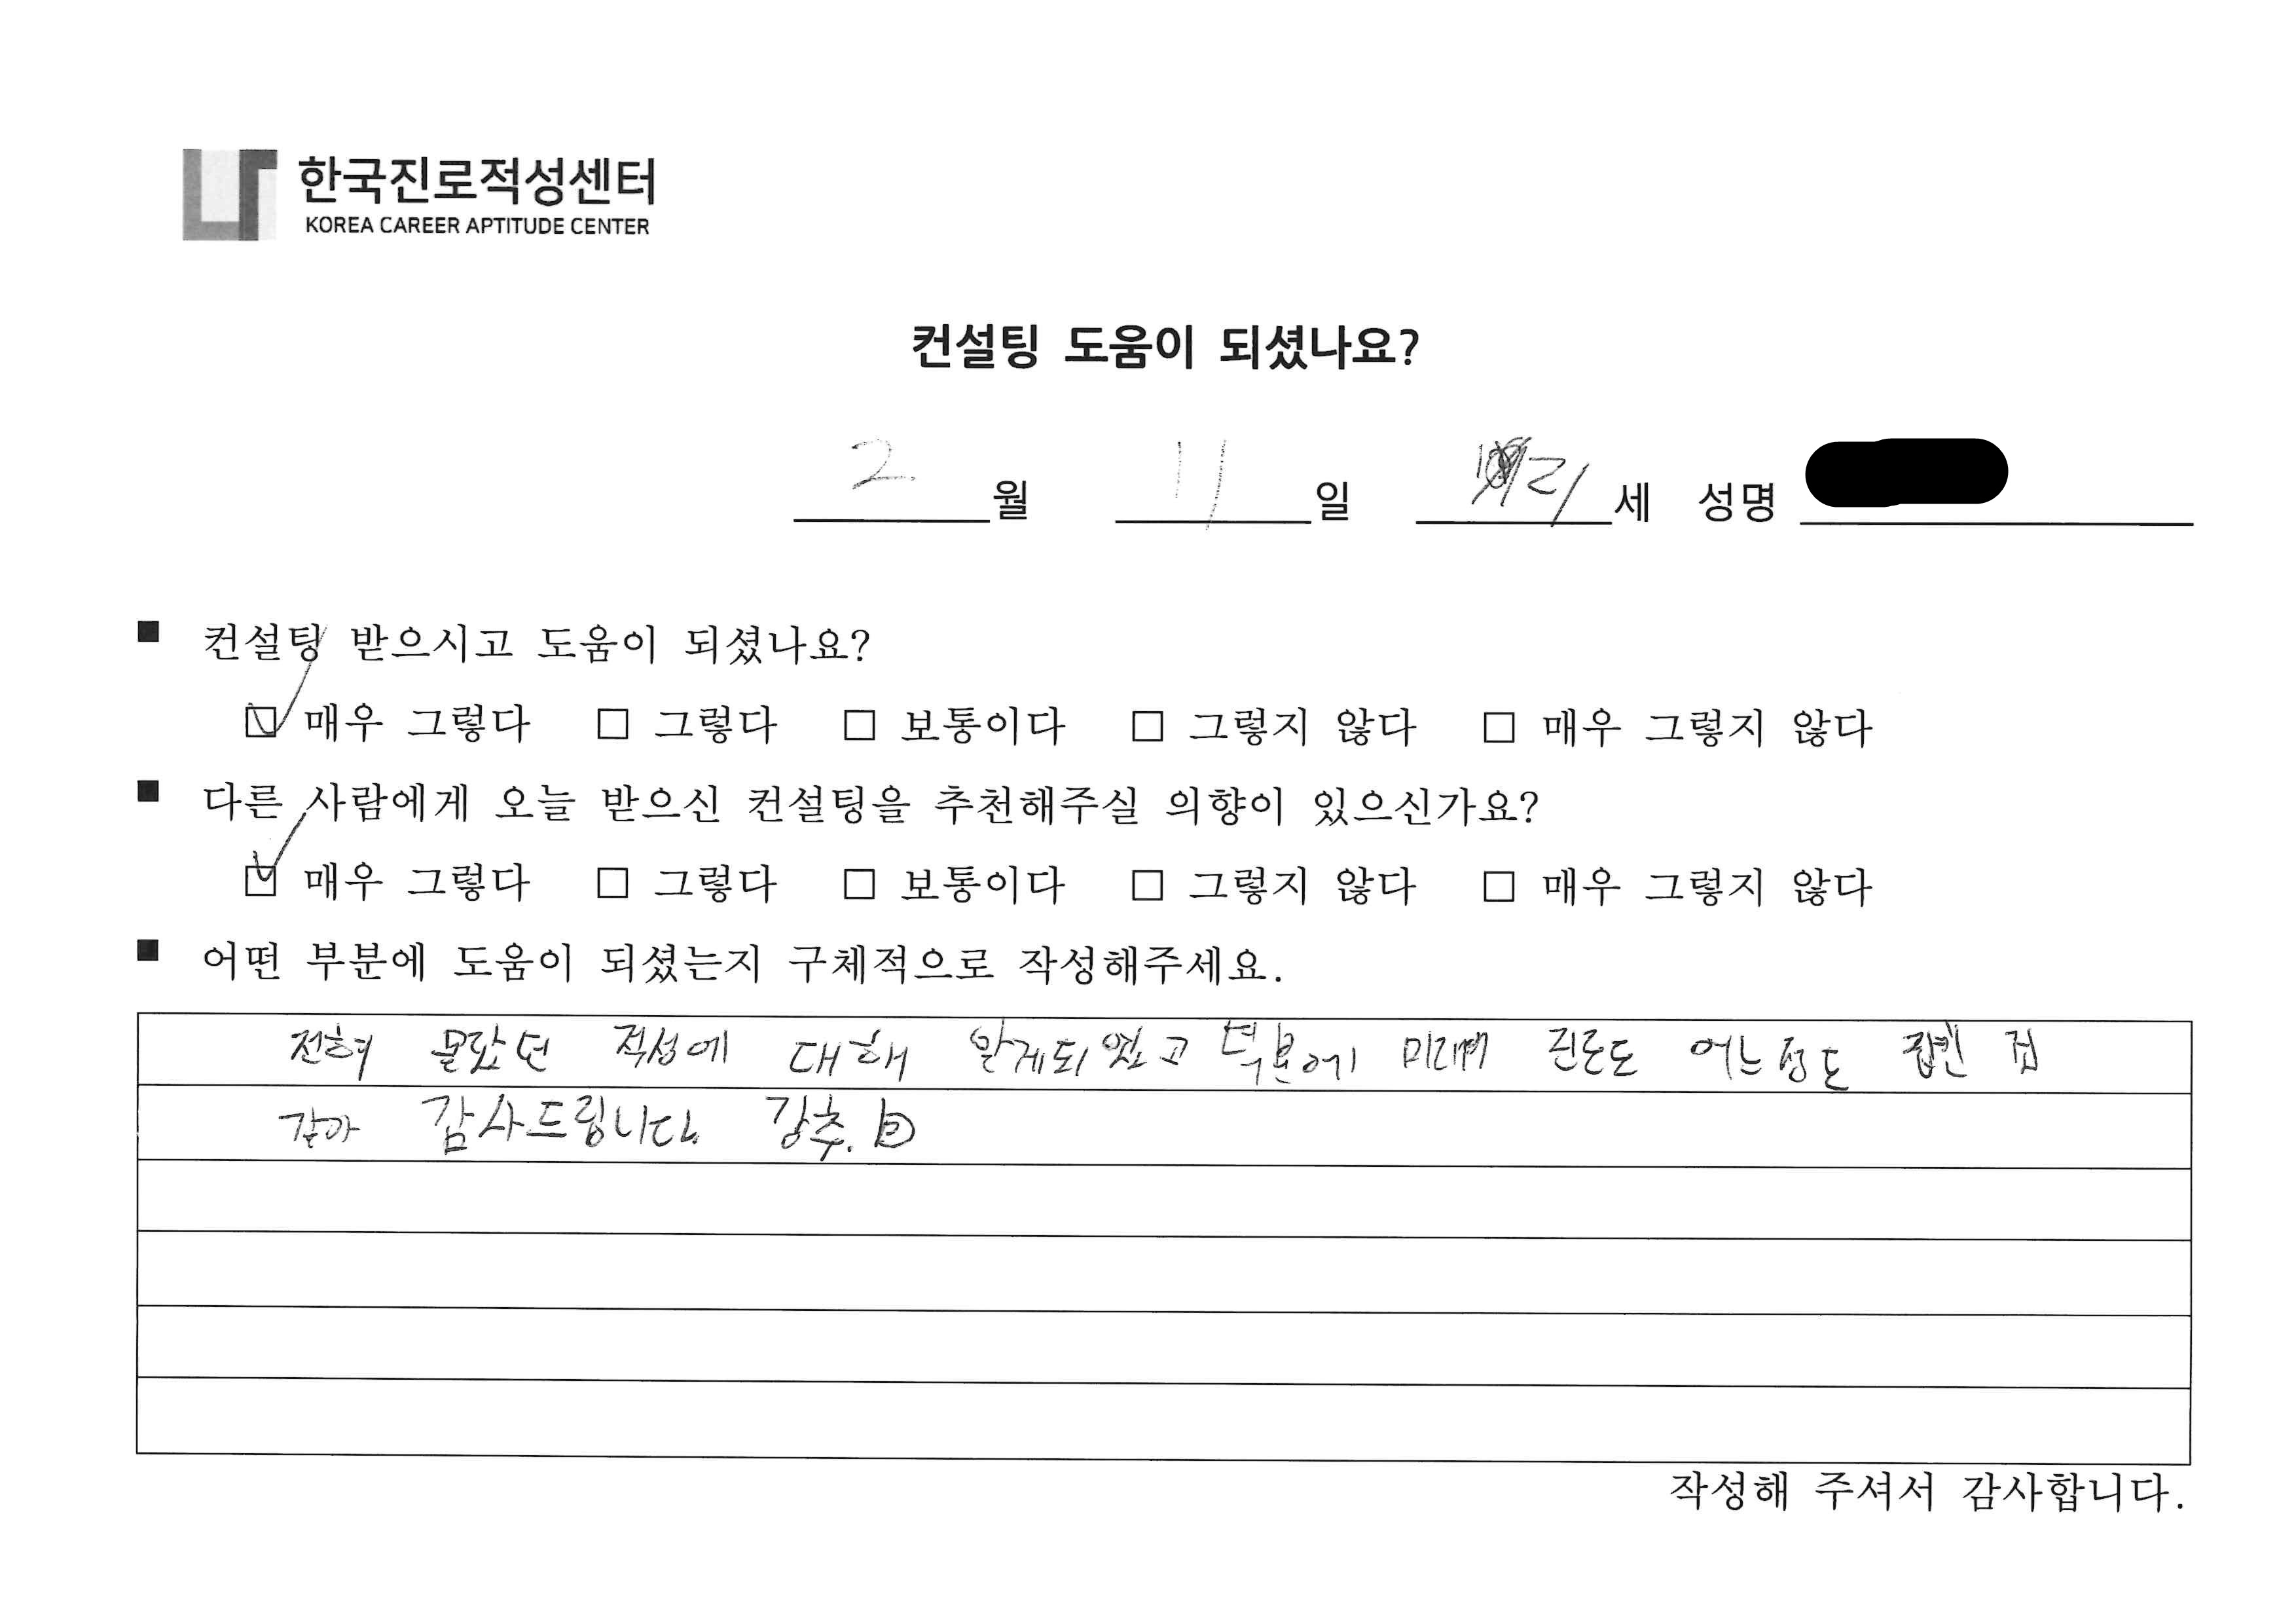 한국진로적성센터
KOREA CAREER APTITUDE CENTER
컨설팅 도움이 되셨나요?
2월 11일 21세 성명
■ 컨설팅 받으시고 도움이 되셨나요?
☑ 매우 그렇다 □ 그렇다 □ 보통이다 □ 그렇지 않다 □ 매우 그렇지 않다
■ 다른 사람에게 오늘 받으신 컨설팅을 추천해주실 의향이 있으신가요?
☑ 매우 그렇다 □ 그렇다 □ 보통이다 □ 그렇지 않다 □ 매우 그렇지 않다
■ 어떤 부분에 도움이 되셨는지 구체적으로 작성해주세요.
전혀 몰랐던 적성에 대해 알게되었고 덕분에 미래 진로도 어느정도 잡힌 것
같아 감사드립니다 강추.
작성해 주셔서 감사합니다.